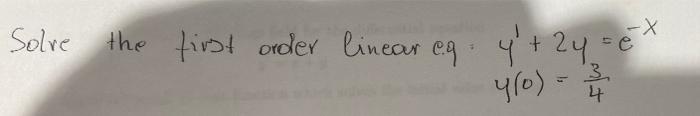 Solve the first order linear eq. y' + 2y = e^-x
y(0) = 3/4